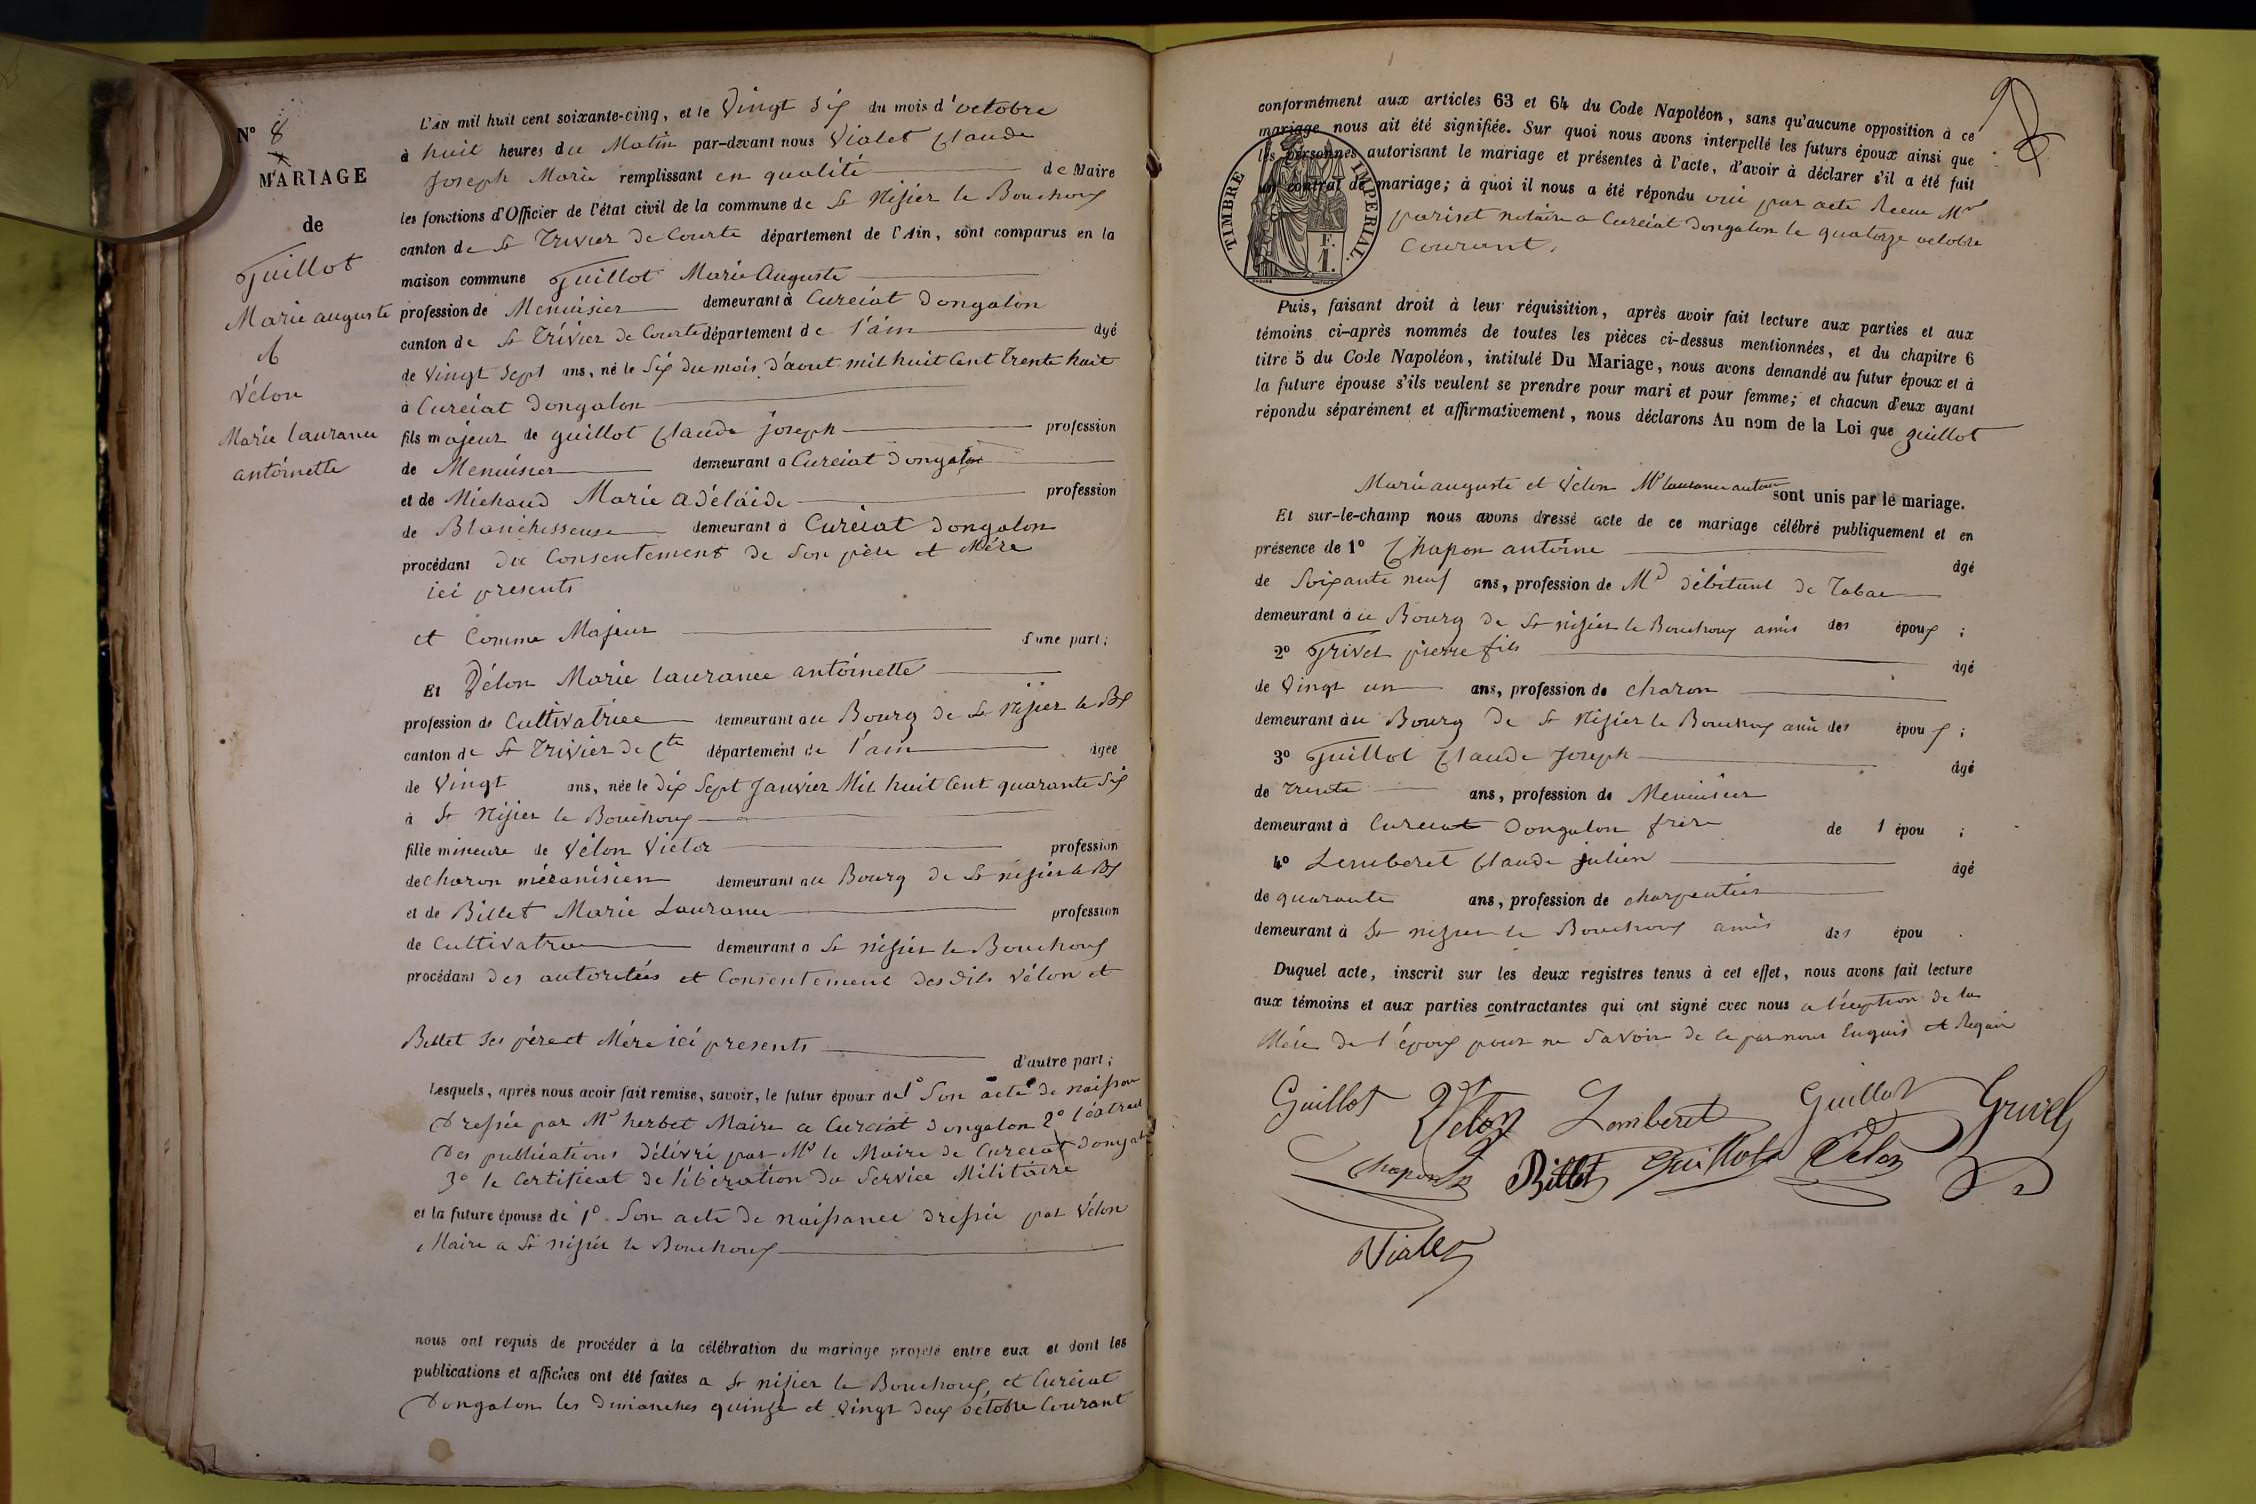 N° 8
MARIAGE
de
Guillot
Marie auguste
et
Vélon
Marie laurance
antoinette
L'AN mil huit cent soixante-cinq, et le Vingt Six du mois d'octobre
à huit heures du Matin par-devant nous Vialet Claude
Joseph Marie remplissant en qualité de Maire
les fonctions d'Officier de l'état civil de la commune de St Nisier le Bouchoux
canton de St Trivier de Courte département de l'Ain, sont comparus en la
maison commune Guillot Marie Auguste
profession de Menuisier demeurant à Curciat Dongalon
canton de St Trivier de Courte département de l'ain âgé
de Vingt Sept ans, né le Six du mois d'aout mil huit Cent Trente huit
à Curciat Dongalon
fils majeur de guillot Claude Joseph profession
de Menuisier demeurant a Curciat Dongalon
et de Michaud Marie adélaide profession
de Blanchisseuse demeurant à Curciat Dongalon
procédant du Consentement de Son père et Mère
ici presents
et Comme Majeur d'une part;
Et Vélon Marie laurance antoinette
profession de Cultivatrice demeurant au Bourg de St Nisier le Bx
canton de St Trivier de Cte département de l'ain âgée
de Vingt ans, née le Dix Sept Janvier Mil huit Cent quarante Six
à St Nisier le Bouchoux
fille mineure de Vélon Victor profession
de charon mécanisien demeurant au Bourg de St nisier le Bx
et de Billet Marie Laurance profession
de Cultivatrice demeurant a St nisier le Bouchoux
procédant des autorités et Consentement des dits Vélon et
Billet Ses père et Mère ici presents
d'autre part;
Lesquels, après nous avoir fait remise, savoir, le futur époux de 1° Son acte de naissan
Dressée par Mr herbet Maire a Curciat Dongalon 2° l'éxtrait
Des publications délivré par Mr le Maire de Curciat Dongalon
3° le Certificat de libération du Service Militaire
et la future épouse de 1° Son acte de naissance dressée par Vélon
Maire a St nisier le Bouchoux
nous ont requis de procéder à la célébration du mariage projeté entre eux et dont les
publications et affiches ont été faites a St nisier le Bouchoux et Curciat
Dongalon les dimanches quinze et Vingt deux octobre Courant
conformément aux articles 63 et 64 du Code Napoléon, sans qu'aucune opposition à ce
mariage nous ait été signifiée. Sur quoi nous avons interpellé les futurs époux ainsi que
les personnes autorisant le mariage et présentes à l'acte, d'avoir à déclarer s'il a été fait
un contrat de mariage; à quoi il nous a été répondu oui par acte Recu Mr
pariset notaire a Curciat Dongalon le quatorze octobre
Courant.
TIMBRE IMPÉRIAL.
F.
1.
Puis, faisant droit à leur réquisition, après avoir fait lecture aux parties et aux
témoins ci-après nommés de toutes les pièces ci-dessus mentionnées, et du chapitre 6
titre 5 du Code Napoléon, intitulé Du Mariage, nous avons demandé au futur époux et à
la future épouse s'ils veulent se prendre pour mari et pour femme; et chacun d'eux ayant
répondu séparément et affirmativement, nous déclarons Au nom de la Loi que guillot
Marie auguste et Vélon Mie laurance antoin sont unis par le mariage.
Et sur-le-champ nous avons dressé acte de ce mariage célébré publiquement et en
présence de 1° Chapon antoine âgé
de Soixante neuf ans, profession de Md débitant de Tabac
demeurant à u Bourg de St nisier le Bouchoux amis des époux ;
2° Grivet pierre fils âgé
de Vingt un ans, profession de charon
demeurant à u Bourg de St Nisier le Bouchoux ami des époux ;
3° Guillot Claude Joseph âgé
de Trente ans, profession de Menuisier
demeurant à Curciat Dongalon frère de l épou ;
4° Lemberet Claude julien âgé
de quarante ans, profession de charpentier
demeurant à St nisier le Bouchoux amis des épou .
Duquel acte, inscrit sur les deux registres tenus à cet effet, nous avons fait lecture
aux témoins et aux parties contractantes qui ont signé avec nous a l'éxeption de la
Mère de l'époux pour ne Savoir de ce par nous Enquis et Requis
Guillot Vélon Lemberet Guillot Grivel
Chapon Billet Guillot Vélon
Vialet